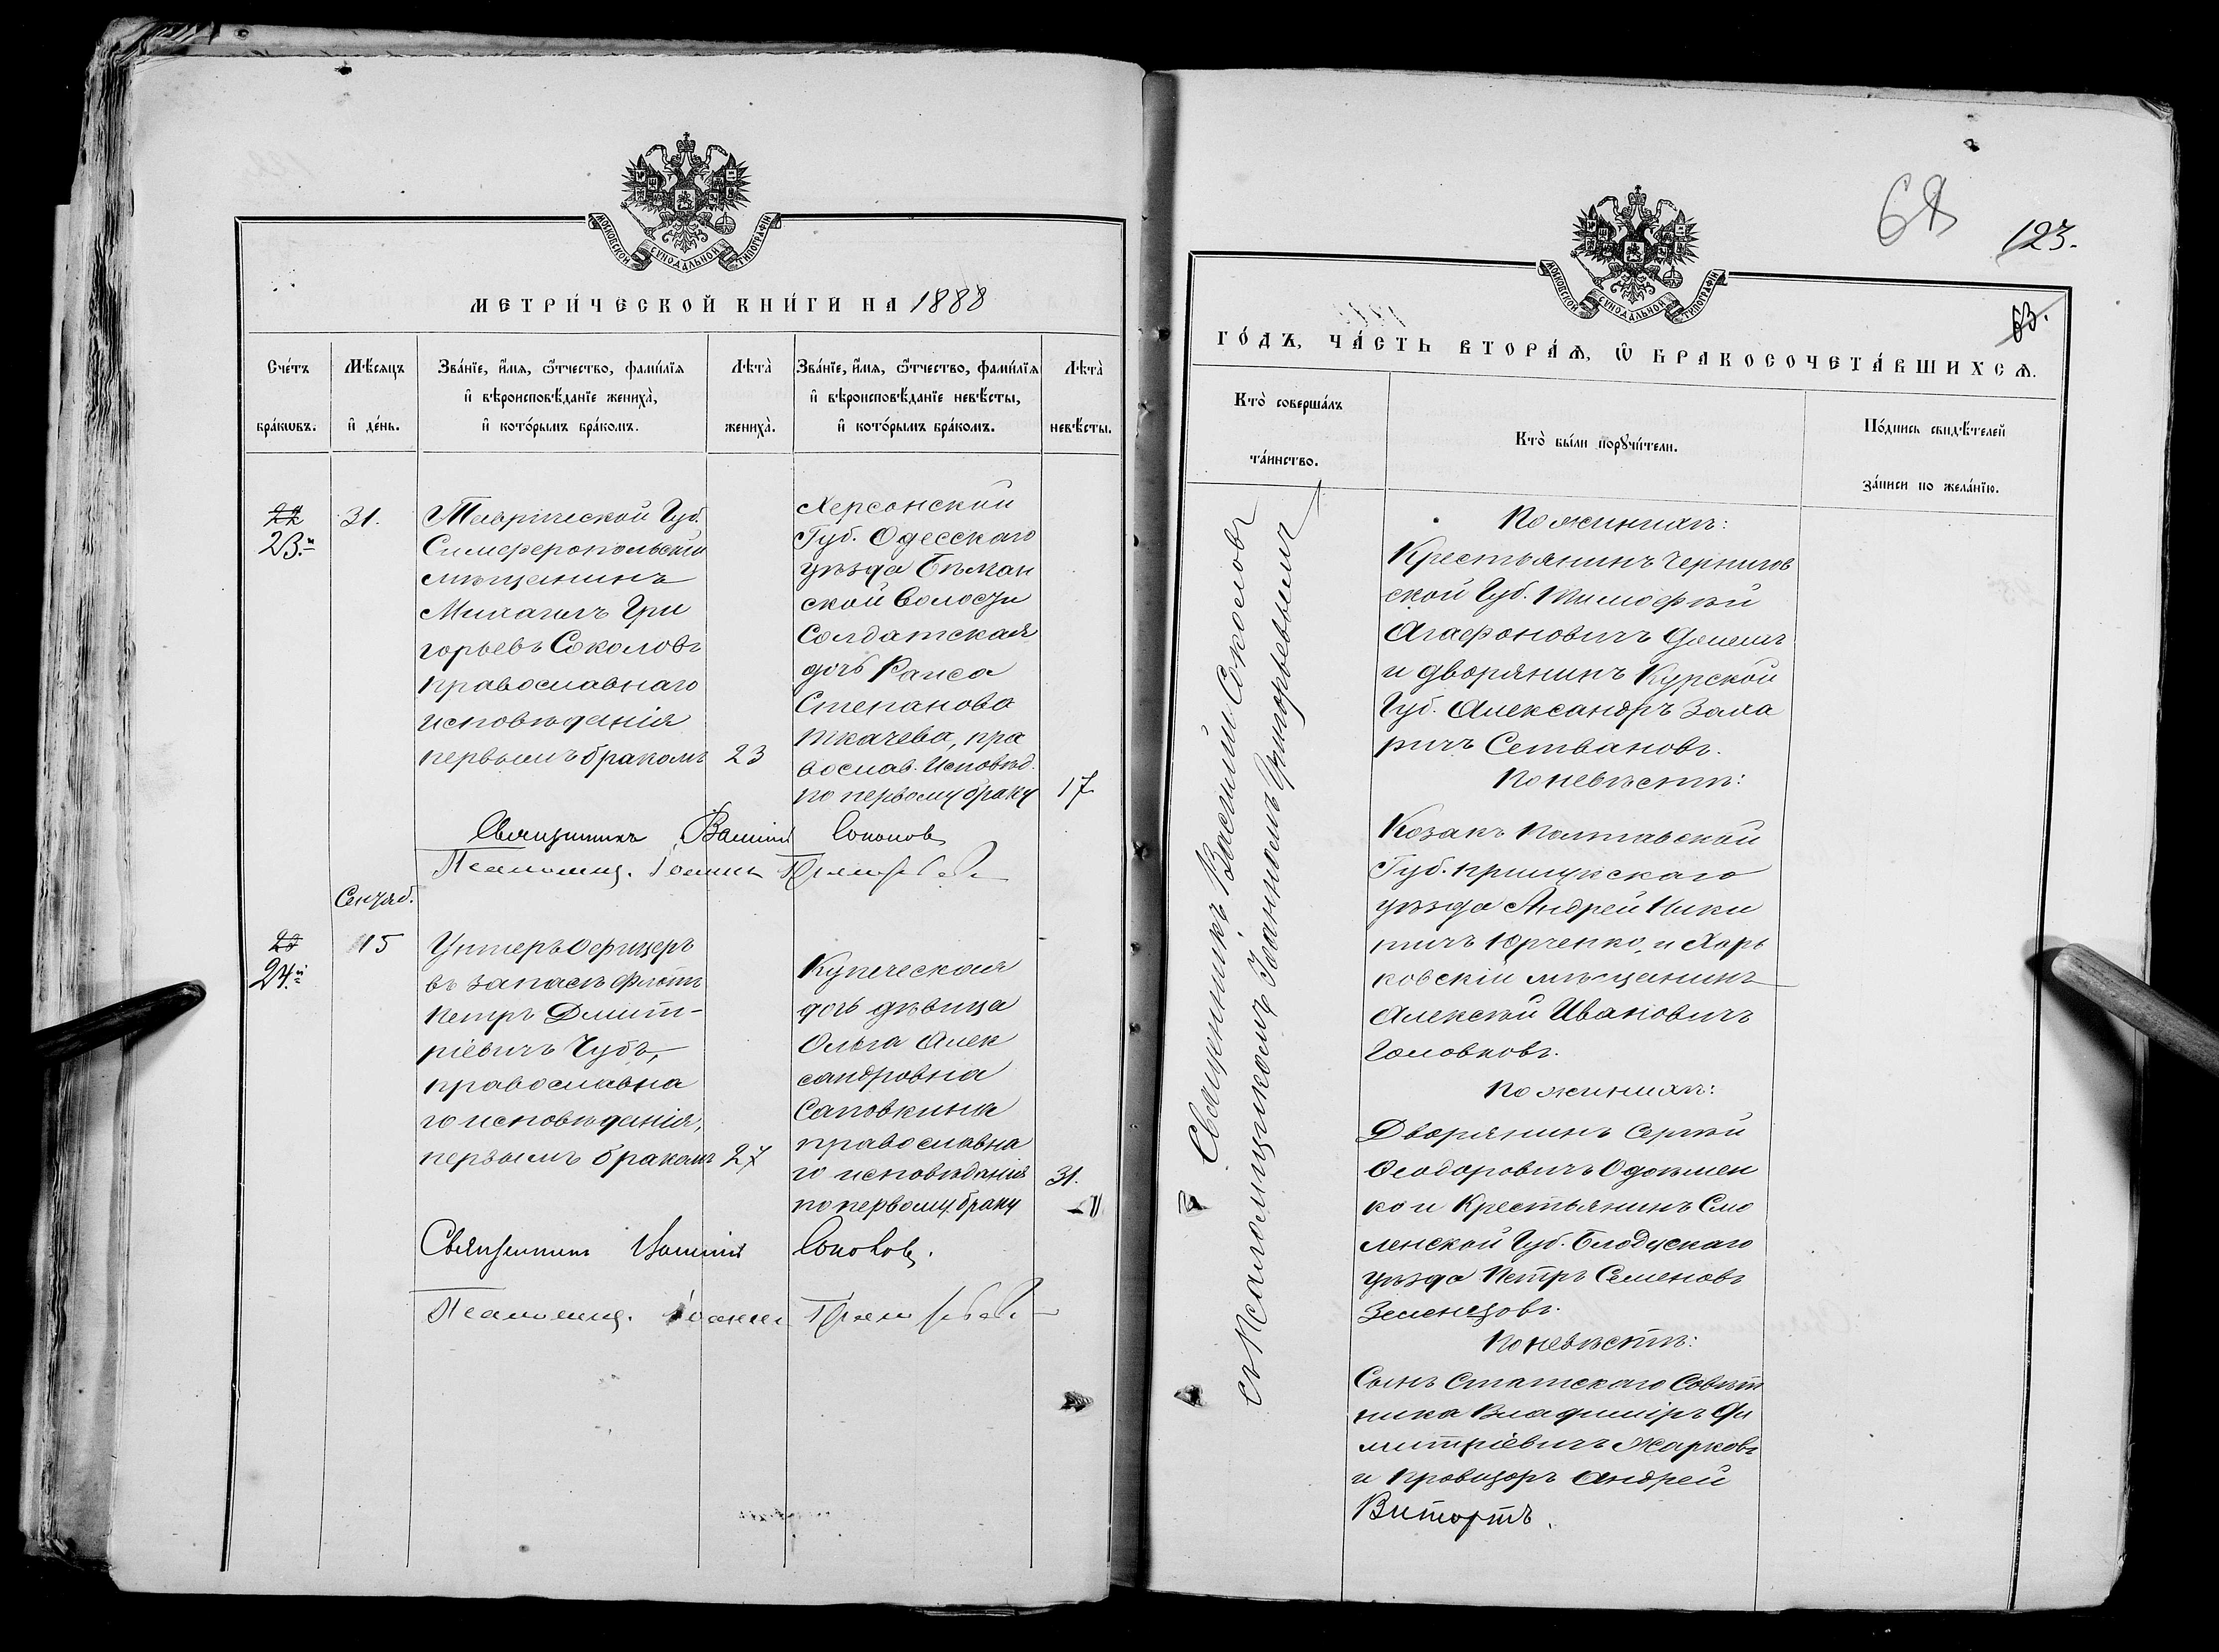 МОСКОВСКОЙ СѴНОДАЛЬНОЙ ТИПОГРАФІИ
МЕТРИ́ЧЕСКОЙ КНИ́ГИ НА 1888
Сче́тъ бра́кѡвъ.
Мѣ́сяцъ и҆ де́нь.
Зва́нїе, и҆́мѧ, ѻ҆́тчество, фами́лїѧ и҆ вѣроисповѣ́данїе жениха̀, и҆ кото́рымъ бра́комъ.
Лѣта̀ жениха̀.
Зва́нїе, и҆́мѧ, ѻ҆́тчество, фами́лїѧ и҆ вѣроисповѣ́данїе невѣ́сты, и҆ кото́рымъ бра́комъ.
Лѣта̀ невѣ́сты.
22
23.й
31.
Таврической Губ.
Симферопольскій
мѣщанинъ
Михаилъ Гри
горьевъ Соколовъ
православнаго
исповѣданія
первымъ бракомъ
23
Херсонской
Губ. Одесскаго
уѣзда
ской волости
Солдатская
дочь Раиса
Степанова
Ткачева, пра
вослав. Исповѣд.
по первому браку
17
Священникъ Василій Соколовъ
Псаломщ. Іоаннъ
Сентяб.
24.й
15
Унтеръ Офицеръ
въ запасѣ флота
Петръ Дмит-
ріевичъ Чубъ,
православна
го исповѣданія,
первымъ бракомъ
27
Купеческая
дочь дѣвица
Ольга Алек
сандровна
Саповкина
православна
го исповѣданія
по первому браку
31.
Священникъ Василій Соколовъ.
Псаломщ. Іоаннъ
68
123.
63.
МОСКОВСКОЙ СѴНОДАЛЬНОЙ ТИПОГРАФІИ
ГО́ДЪ, ЧА́СТЬ ВТОРА́Ѧ, Ѡ҆ БРАКОСОЧЕТА́ВШИХСѦ.
Кто̀ соверша́лъ та́инство.
Кто̀ бы́ли порꙋчи́тели.
По́дпись свидѣ́телей за́писи по жела́нїю.
Священникъ Василій Соколовъ
съ Псаломщикомъ Іоанномъ Григорьевымъ
По женихѣ:
Крестьянинъ Чернигов
ской Губ. Тимофѣй
Агафоновичъ
и дворянинъ Курской
Губ. Александръ Заха
ричъ Сетвановъ.
По невѣстѣ:
Козакъ Полтавской
Губ. Прилукскаго
уѣзда Андрей Ники
тичъ Юрченко, и Харь
ковскій мѣщанинъ
Алексѣй Ивановичъ
Головковъ.
По женихѣ:
Дворянинъ Сергѣй
Ѳеодоровичъ
ко и Крестьянинъ Смо
ленской Губ.
уѣзда Петръ Семеновъ
Зеленцовъ.
По невѣстѣ:
Сынъ Статскаго Совѣт
ника Владиміръ Ди
митріевичъ Жарковъ
и Провизоръ Андрей
Витортъ.